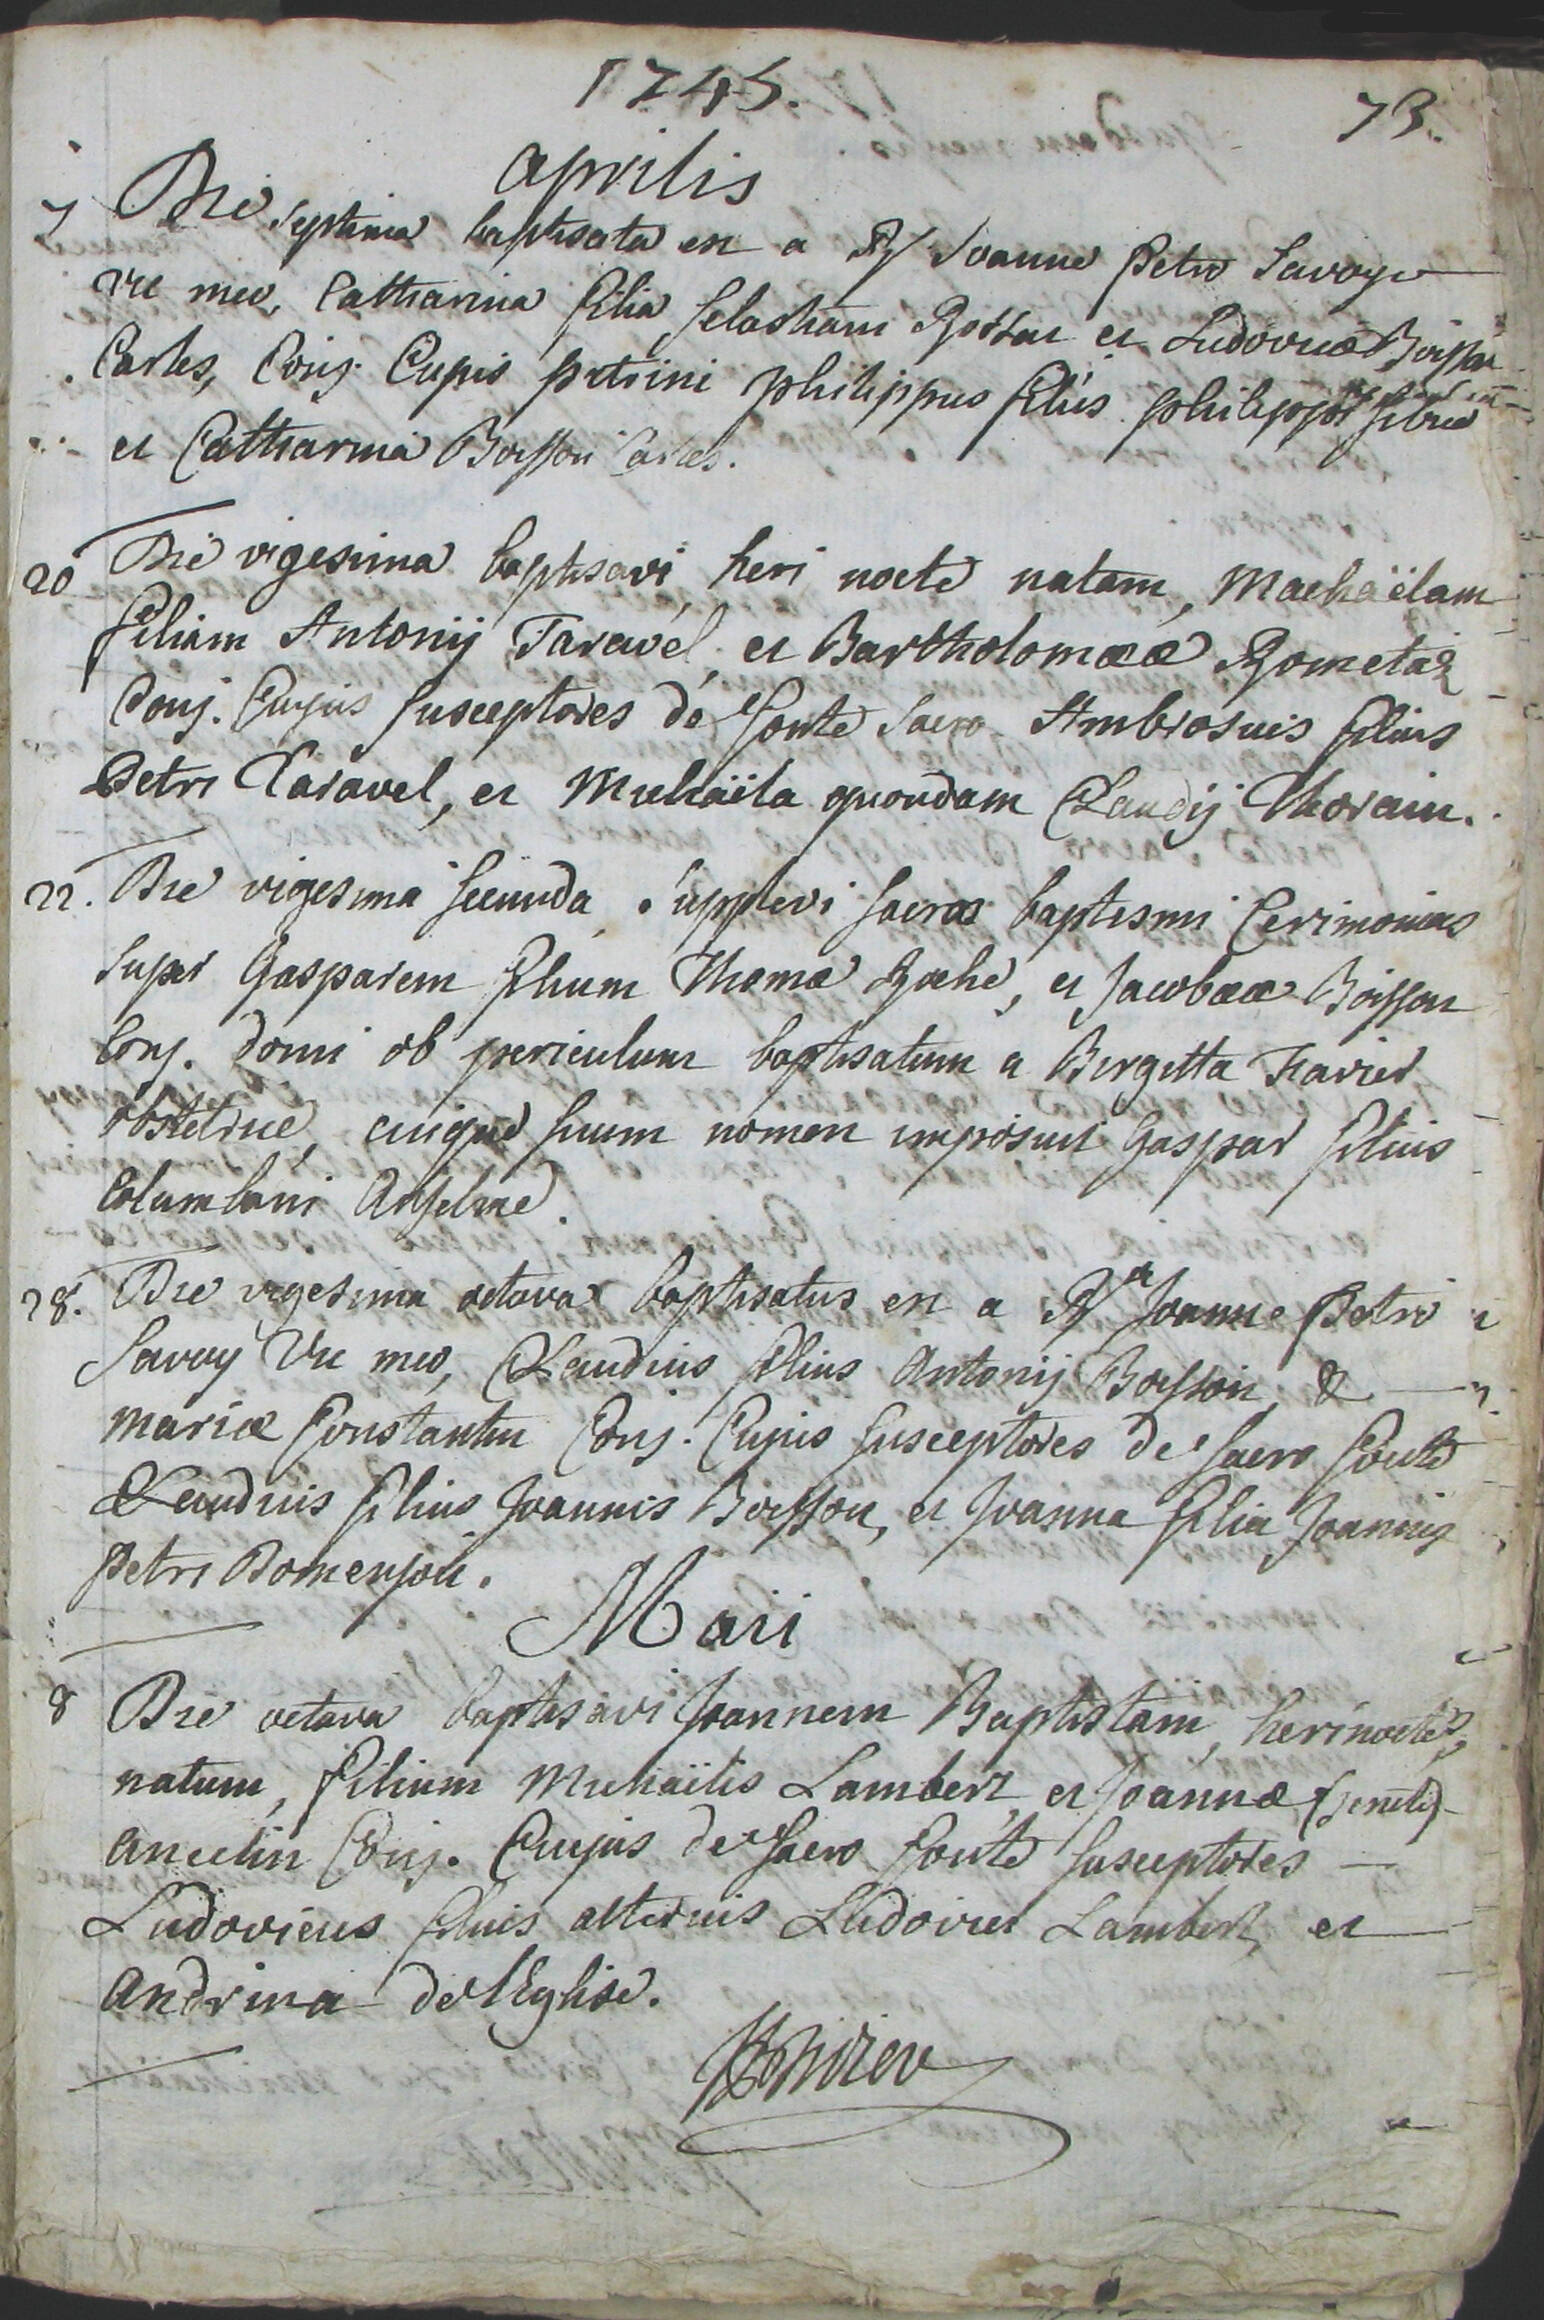 1745.
73.
aprilis
7 Die septima baptisata est a Rd Joanne Petro Savoye
Vic meo, Catharina filia Sebastiani Rossat et Ludovicæ Boisson
Carles, Conj. Cujus patrini philippus filius philippi
et Catharina Boisson Carles.
20 Die vigesima baptisavi, heri nocte natam, Machaëlam
filiam Antonij Taravel, et Bartholomææ Rometaz
Conj. Cujus susceptores de fonte sacro Ambrosius filius
Petri Taravel, et Michaëla quondam Claudij Thorain.
22. Die vigesima secunda, supplevi sacras baptismi Cerimonias
super Gasparem filium Thomæ Roche, et Jacobææ Boisson
Conj. domi ob periculum baptisatum a Birgitta Xavier
obstetrice, cuique suum nomen imposuit Gaspar filius
Columbani Anselme.
28. Die vigesima octava baptisatus est a Rd Joanne Petro
Savoy Vic meo, Claudius filius Antonij Boisson, &
mariæ Constantin Conj. Cujus susceptores de sacro fonte
Claudius filius Joannis Boisson, et Joanna filia Joannis
Petri Domenjon.
Maii
8 Die octava baptisavi Joannem Baptistam, heri nocte
natum, filium Michaëlis Lambert, et Joannæ
ancelin Conj. Cujus de sacro fonte susceptores
Ludovicus filius alterius Ludovici Lambert, et
Andrina de l'Eglise.